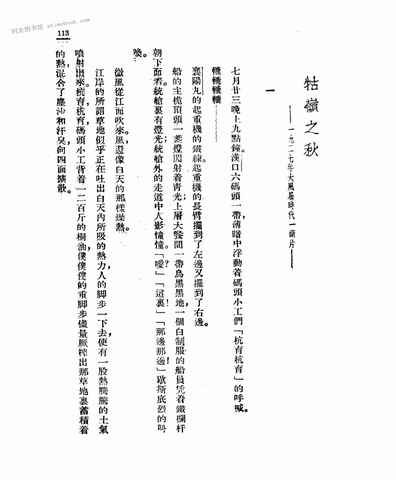 牯嶺之秋
——一九二七年大風暴時代一斷片——
一
七月廿三晚上九點鐘，漢口六碼頭一帶薄暗中浮動着碼頭小工們「杭育杭育」的呼喊。
轆轆轆轆……
襄陽九的起重機的鐵線，起重機的長臂擺到了左邊又擺到了右邊。
船的主桅頂頭一盞燈閃射着青光；上層大餐間一帶烏黑黑地，一個白制服的船員凭着鐵欄杆
朝下面看。統艙裏有燈光，統艙外的走道中人影憧憧。「噯」「這裏」「那邊那邊」歇斯底烈的叫
喚。
微風從江面吹來，風還像白天的那樣燥熱。
江岸的所謂草地似乎正在吐出白天內所吸的熱力，人的腳步一下去，便有一股熱騰騰的土氣
噴射出來。杭育，杭育，碼頭小工背着一二百斤的桐油，僕僕僕的重腳步儘量壓榨出那草地裏蓄積着
的熱，混合了塵沙和汗臭向四面擴散。
113